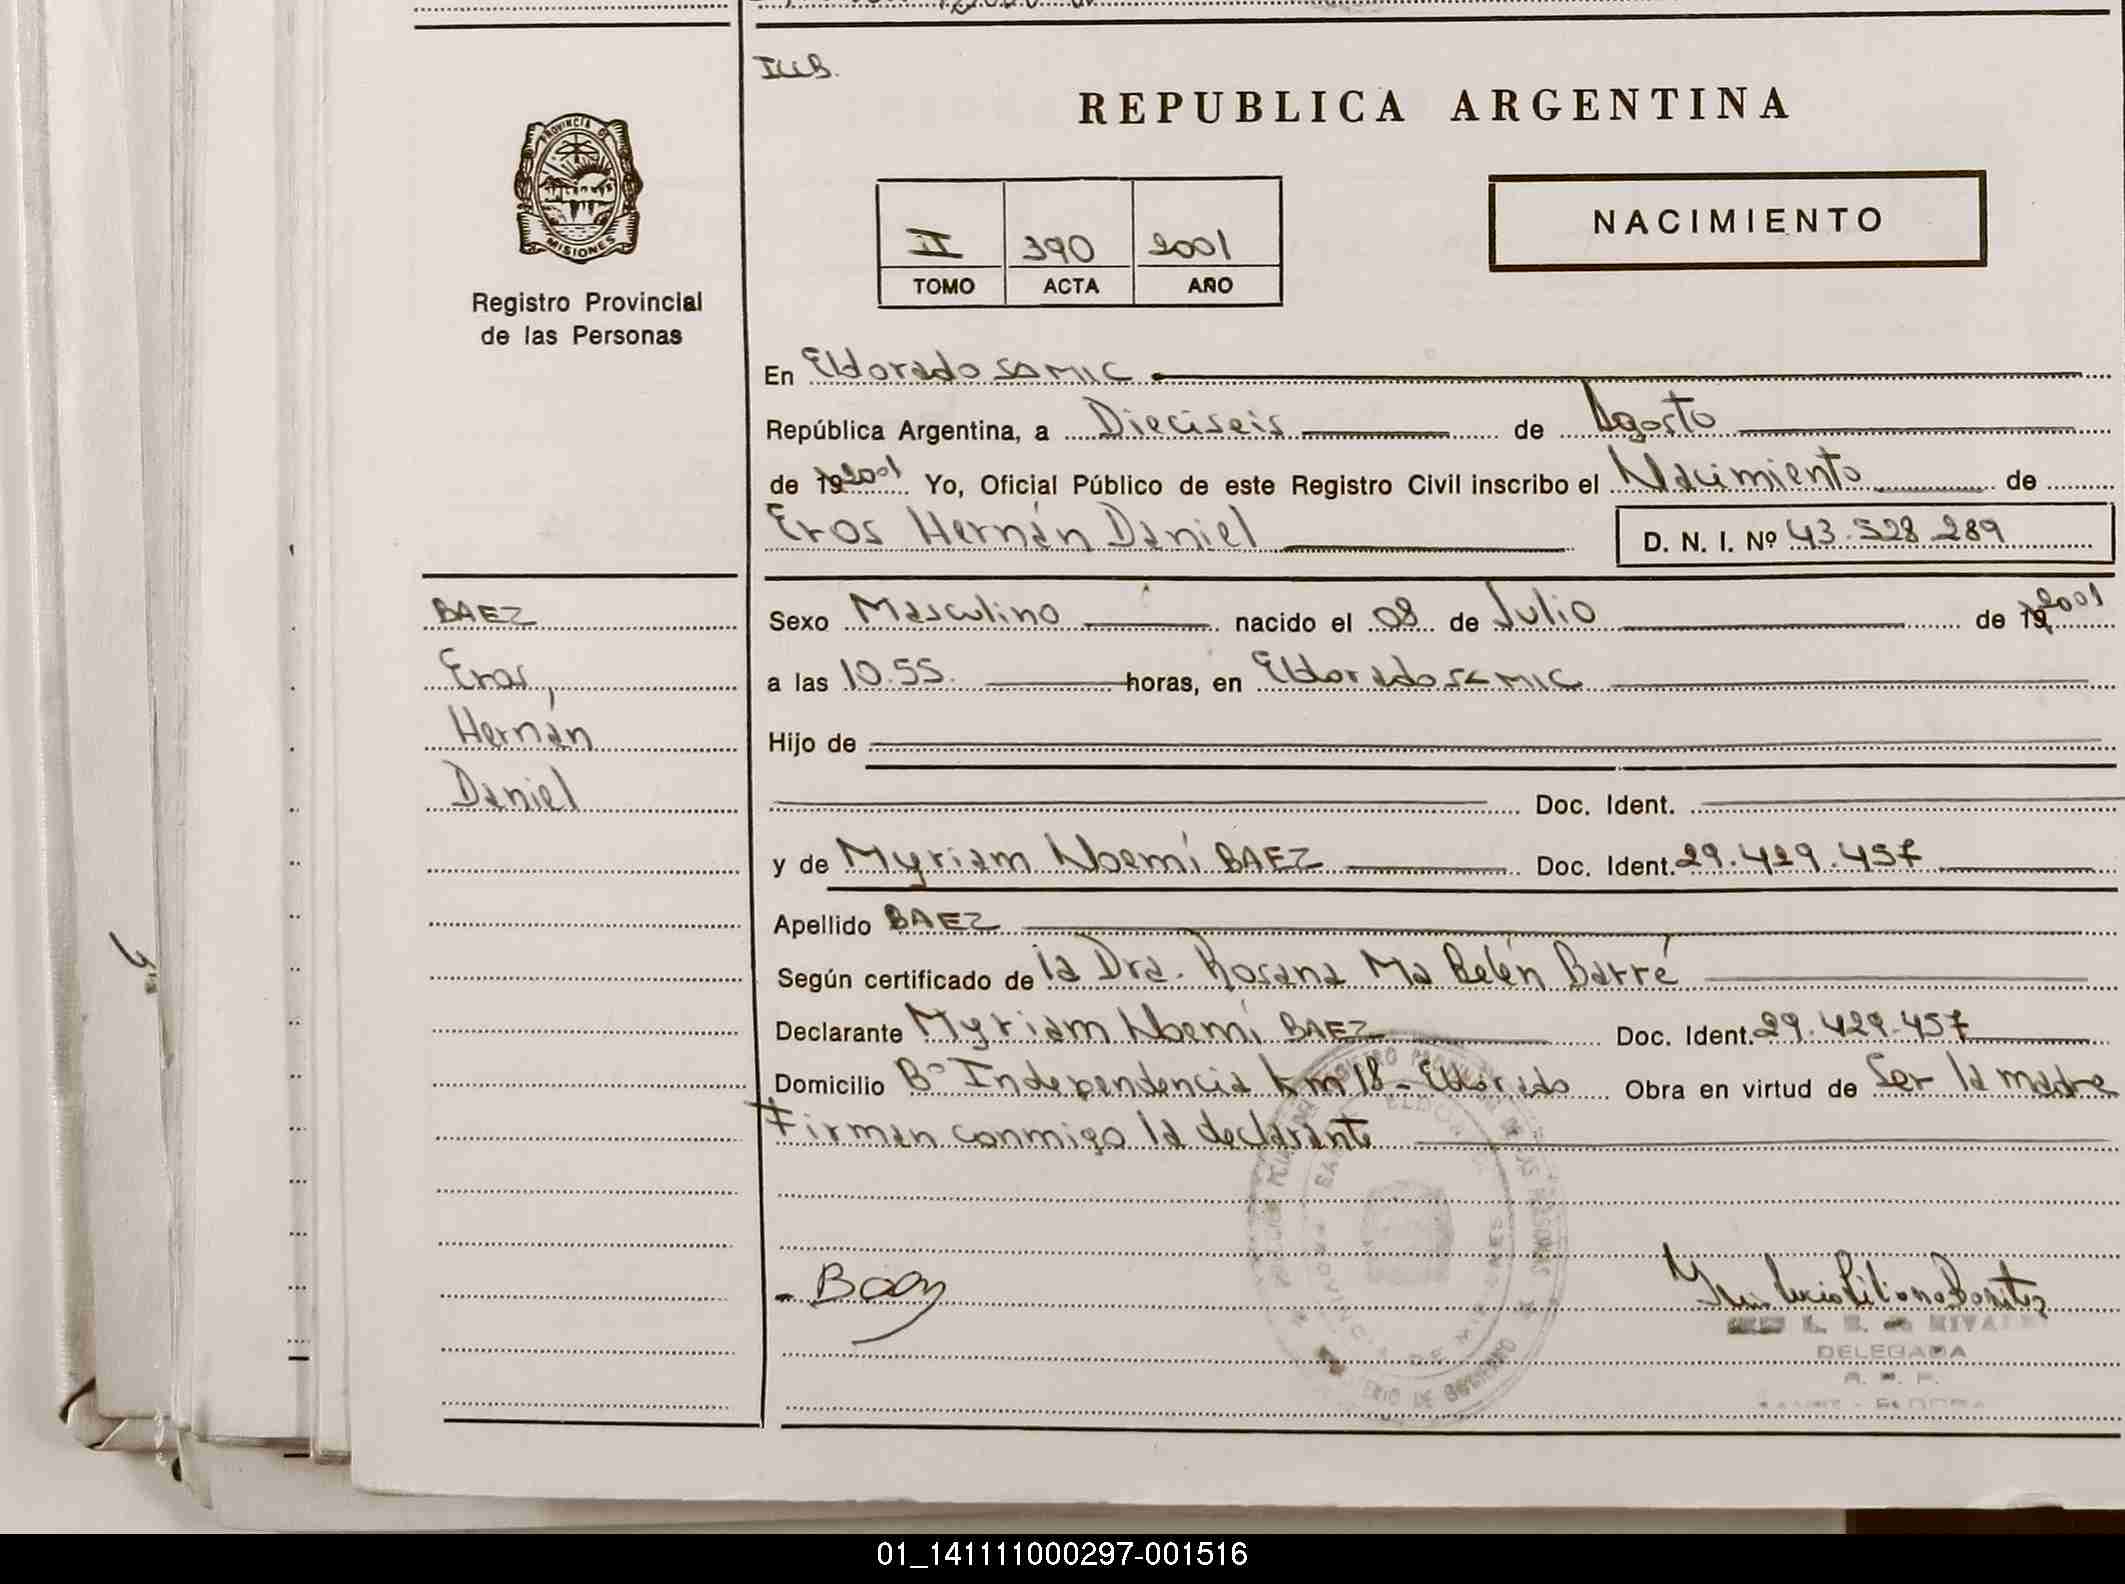 IUB.
REPUBLICA ARGENTINA
PROVINCIA DE
MISIONES
Registro Provincial
de las Personas
II 390 2001
TOMO ACTA AÑO
NACIMIENTO
En Eldorado SAMIC
República Argentina, a Dieciseis de Agosto
de 19 2001 Yo, Oficial Público de este Registro Civil inscribo el Nacimiento de
Eros Hernán Daniel D. N. I. Nº 43.528.289
BAEZ
Eros,
Hernán
Daniel
Sexo Masculino nacido el 08 de Julio de 19 2001
a las 10.55. horas, en Eldorado SAMIC
Hijo de
Doc. Ident.
y de Myriam Noemí BAEZ Doc. Ident. 29.429.457
Apellido BAEZ
Según certificado de la Dra. Rosana Ma Belén Barré
Declarante Myriam Noemí BAEZ Doc. Ident. 29.429.457
Domicilio Bº Independencia Km 18 - Eldorado Obra en virtud de Ser la madre
Firman conmigo la declarante
Baez
DELEGADA
01_141111000297-001516